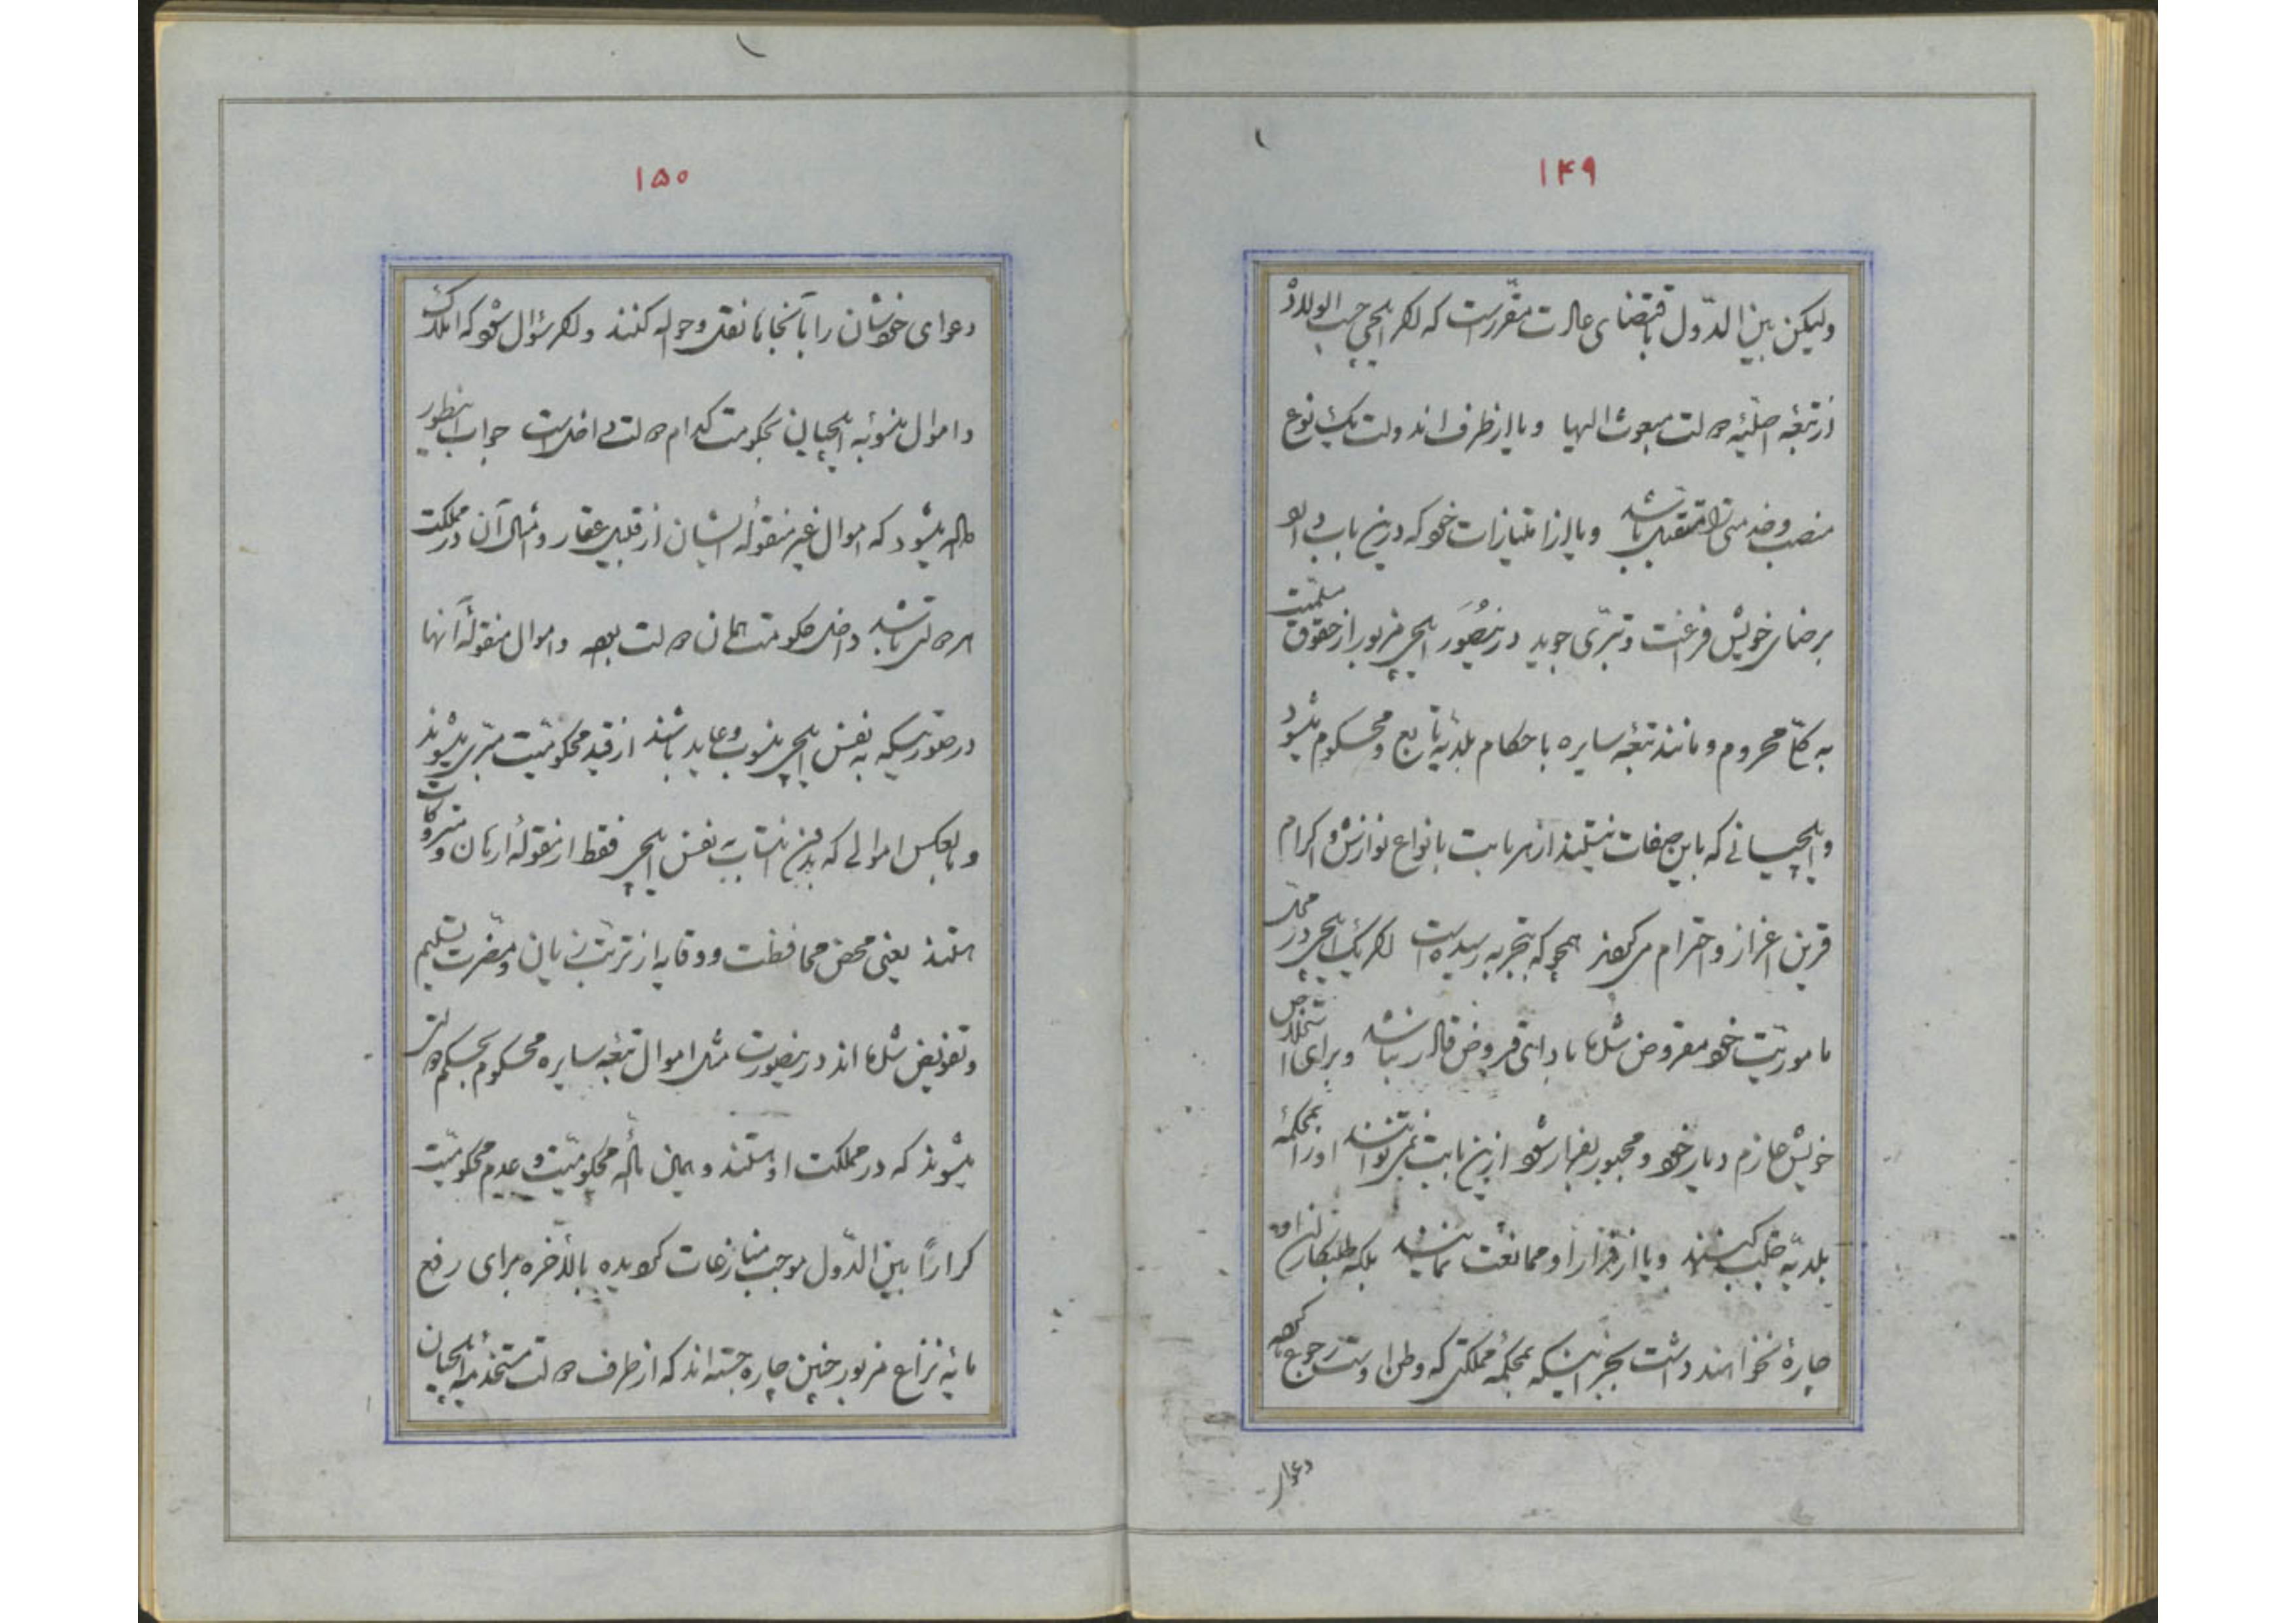 ۱۴۹
ولیکن بین الدّول باقتضای عادت مقرّرست که اگر ایلچی حسب الولاده
از تبعهٔ اصلیّهٔ دولت مبعوث الیها و یا از طرف اندولت بیک نوع
منصب و خدمتی متقبل باشد و یا از امتیازات خود که درین باب دارد
برضای خویش فراغت و تبرّی جوید درینصورت ایلچی مزبور از حقوق سلمیّت
به کلّی محروم و مانند تبعهٔ سایره باحکام بلدیه تابع و محکوم میشود
و ایلچیانی که باین صفات نیستند از هر بابت بانواع نوازش و اکرام
قرین اعزاز و احترام می گردند همچو که بتجربه رسیده است اگر یک ایلچی در محل
ماموریّت خود مقروض شده بادای قروض قادر نباشد و برای استخلاص
خویش عازم دیار خود و مجبور بفرار شود ازین بابت نمی توانند او را بمحکمهٔ
بلدیّه جلب کنند و یا از فرار او ممانعت نمایند بلکه طلبکاران او
چارهٔ نخواهند داشت بجز اینکه بمحکمهٔ مملکتی که وطن اوست رجوع کرده
دعوای
۱۵۰
دعوای خودشان را بآنجاها نقل و حواله کنند و اگر سؤال شود که املاک
و اموال منسوبهٔ ایلچیان بحکومت کدام دولت داخل است جواب اینطور
داده میشود که اموال غیر منقولهٔ ایشان از قبیل عقار و امثال آن در مملکت
هر دولتی باشد داخل حکومت همان دولت بوده و اموال منقولهٔ آنها
در صورتیکه به نفس ایلچی منسوب و عاید باشند از قید محکومیّت مبرّی میشوند
و بالعکس اموالی که بدون انتساب به نفس ایلچی فقط از مقولهٔ ارهان و متروکات
هستند یعنی محض محافظت و وقایه از ترتّب زیان و مضرت تسلیم
و تفویض شده اند درینصورت مثل اموال تبعهٔ سایره محکوم بحکم دولتی
میشوند که در مملکت او هستند و همین مسألهٔ محکومیّت و عدم محکومیّت
کراراً بین الدّول موجب منازعات گردیده بالأخره برای رفع
مایهٔ نزاع مزبور چنین چاره جسته اند که از طرف دولت مستخدمهٔ ایلچیان